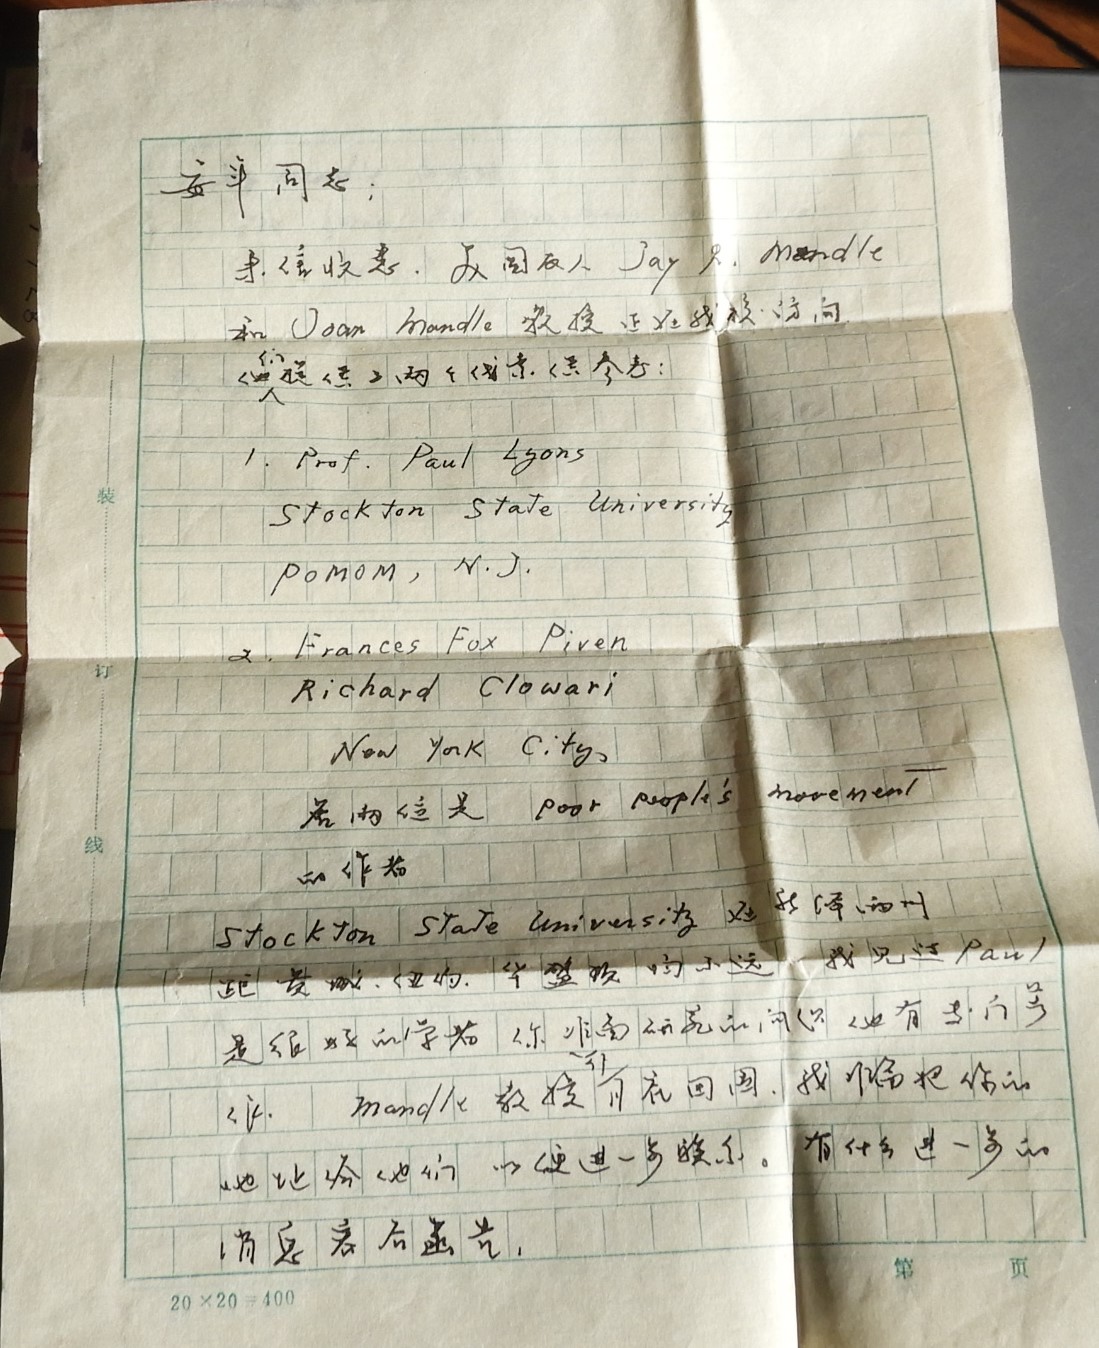 安年同志：
来信收悉. 美国友人 Jay R. Mandle
和 Joan Mandle 教授正在我校访问
他们二人提供了两个线索. 供参考：
1. Prof. Paul Lyons
Stockton State University
POMOM, N.J.
2. Frances Fox Piven
Richard Clowari
New York City,
若两位是 poor people's movement
的作者
Stockton State University 在新泽西州
距费城. 纽约. 华盛顿均不远. 我见过 Paul
是很好的学者 你准备研究的问题他有专门著
作. Mandle 教授 月底回国. 我准备把你的
地址给他们 以便进一步联系。有什么进一步的
消息容后函告.
装
订
线
第 页
20×20=400